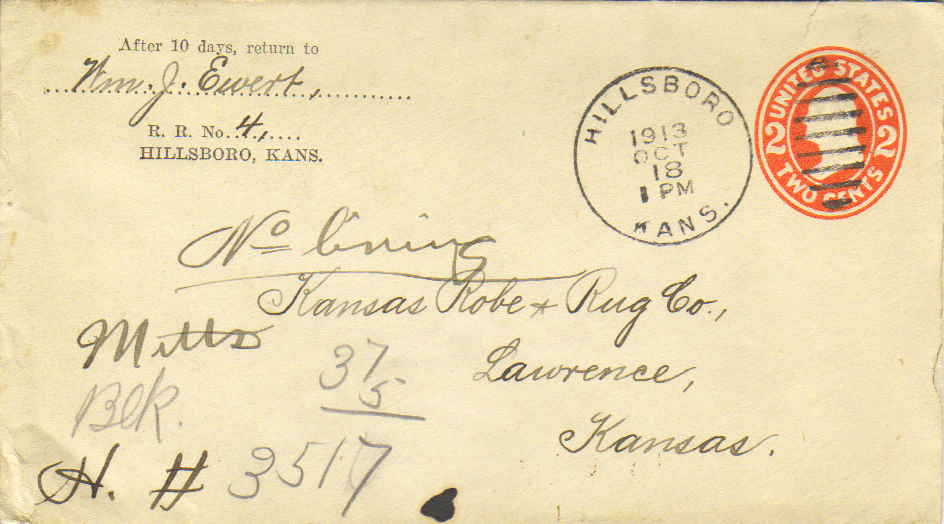 After 10 days, return to
Wm. J. Ewert,
R. R. No. 4,
HILLSBORO, KANS.
HILLSBORO
1913
OCT
18
1 PM
KANS.
UNITED STATES
2 2
TWO CENTS
No
Kansas Robe & Rug Co.,
Lawrence,
Kansas.
Mitts
Blk.
37
5
H. # 3517